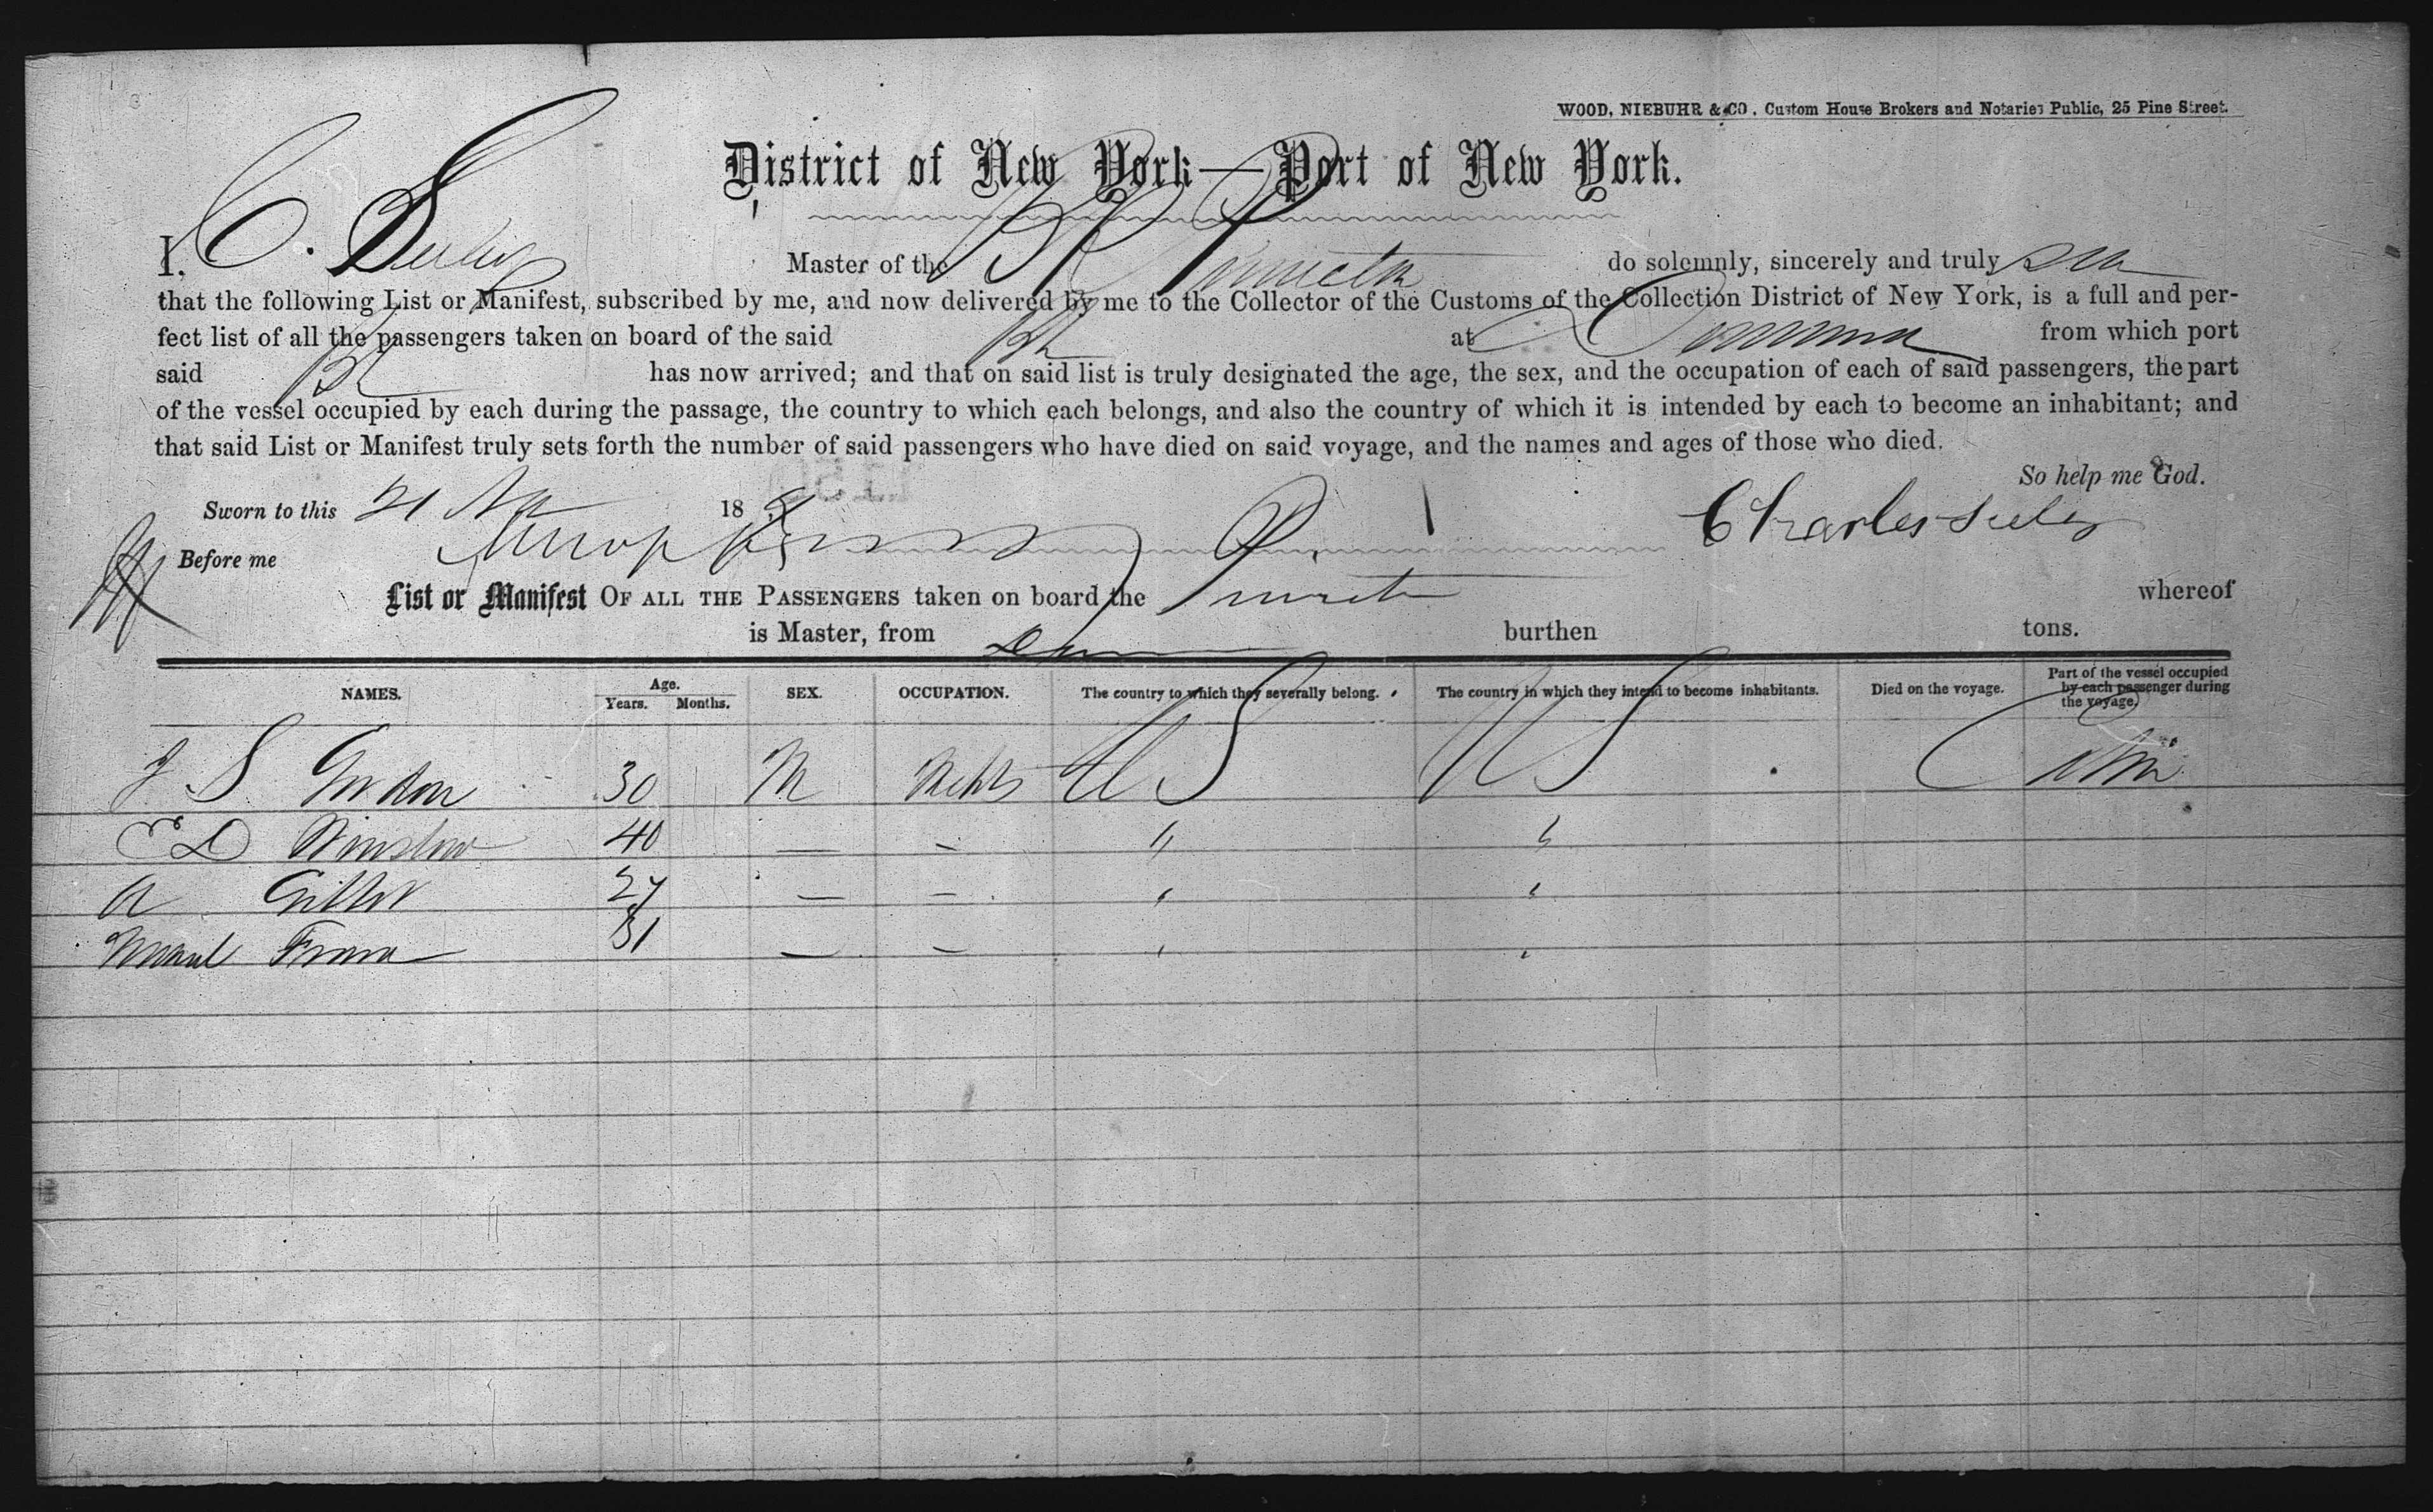 WOOD, NIEBUHR & CO., Custom House Brokers and Notaries Public, 25 Pine Street.
District of New York—Port of New York.
I, C. Seeley Master of the do solemnly, sincerely and truly
that the following List or Manifest, subscribed by me, and now delivered by me to the Collector of the Customs of the Collection District of New York, is a full and per-
fect list of all the passengers taken on board of the said Bk at from which port
said Bk has now arrived; and that on said list is truly designated the age, the sex, and the occupation of each of said passengers, the part
of the vessel occupied by each during the passage, the country to which each belongs, and also the country of which it is intended by each to become an inhabitant; and
that said List or Manifest truly sets forth the number of said passengers who have died on said voyage, and the names and ages of those who died.
So help me God.
Sworn to this 21 18 Charles Seeley
Before me
List or Manifest OF ALL THE PASSENGERS taken on board the whereof
is Master, from burthen tons.
NAMES. Age. Years. Months. SEX. OCCUPATION. The country to which they severally belong. The country in which they intend to become inhabitants. Died on the voyage. Part of the vessel occupied by each passenger during the voyage.
J S Gordon 30 M U S U S Cabin
E D Winslow 40 — — " "
A 27 — — " "
31 — — " "